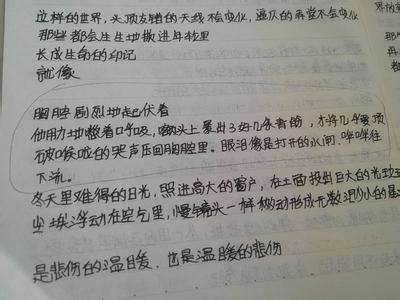 这样的世界，头顶交错的天线不会变化，逼仄的弄堂不会变化
那些都会生生地撒进年轮里
长成生命的印记
就像
胸腔剧烈地起伏着
他用力地憋着口呼吸，额头上暴出了好几条青筋，才将几乎要顶
破喉咙的哭声压回胸腔里。眼泪像是打开的水闸，哗哗往
下流。
冬天里难得的日光，照进高大的窗户，在地面投出巨大的光斑
尘埃浮动在空气里，慢镜头一样移动形成无数渺小的星
是悲伤的温暖，也是温暖的悲伤